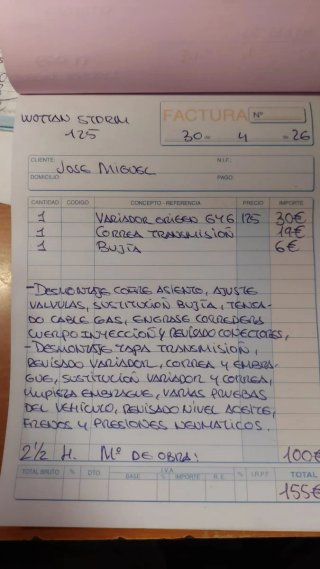 WOTTAN STORM
125
FACTURA Nº
30 de 4 de 26
CLIENTE: JOSE MIGUEL N.I.F.:
DOMICILIO: PAGO:
CANTIDAD CÓDIGO CONCEPTO - REFERENCIA PRECIO IMPORTE
1 VARIADOR ORIGEN GY6 125 30€
1 CORREA TRANSMISIÓN 19€
1 BUJÍA 6€
-DESMONTAJE COFRE ASIENTO, AJUSTE
VALVULAS, SUSTITUCIÓN BUJÍA, TENSA-
DO CABLE GAS, ENGRASE CORREDERA
CUERPO INYECCIÓN Y REVISADO CONECTORES,
-DESMONTAJE TAPA TRANSMISIÓN,
REVISADO VARIADOR, CORREA Y EMBRA-
GUE, SUSTITUCIÓN VARIADOR Y CORREA,
LIMPIEZA EMBRAGUE, VARIAS PRUEBAS
DEL VEHÍCULO, REVISADO NIVEL ACEITE,
FRENOS Y PRESIONES NEUMATICOS.
2 1/2 H. Mº DE OBRA: 100€
TOTAL BRUTO % DTO. BASE % I.V.A. IMPORTE % R.E. % I.R.P.F. TOTAL
155€